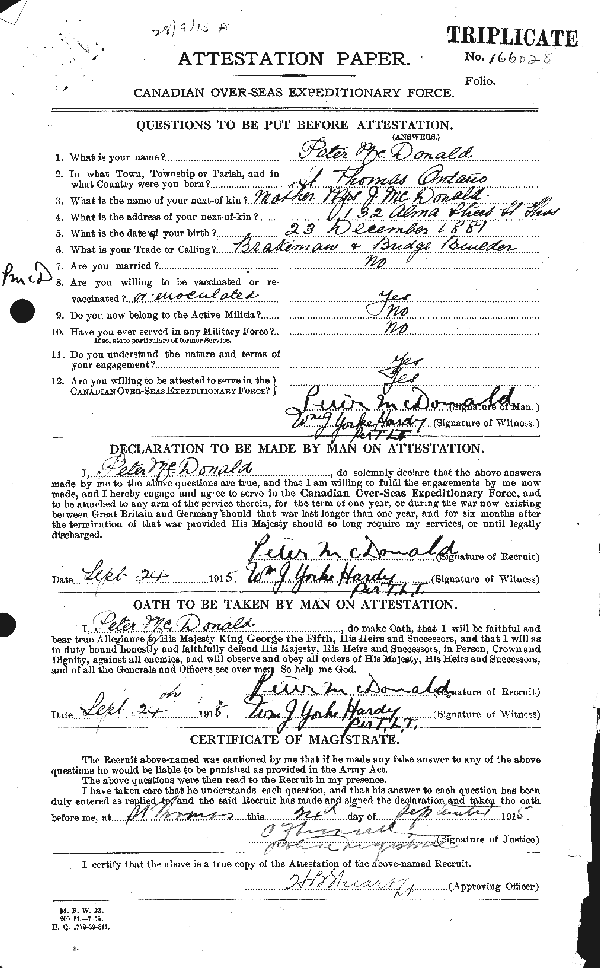 28/9/15
TRIPLICATE
ATTESTATION PAPER.
No. 166028
Folio.
CANADIAN OVER-SEAS EXPEDITIONARY FORCE.
QUESTIONS TO BE PUT BEFORE ATTESTATION.
(ANSWERS.)
1. What is your name? Peter McDonald
2. In what Town, Township or Parish, and in
what Country were you born? St Thomas Ontario
3. What is the name of your next-of-kin? Mother Mrs J McDonald
4. What is the address of your next-of-kin? 132 Alma Street St Thos
5. What is the date of your birth? 23 December 1887
6. What is your Trade or Calling? Brakeman & Bridge Builder
7. Are you married? No
PMcD 8. Are you willing to be vaccinated or re-
vaccinated? or inoculated Yes
9. Do you now belong to the Active Militia? No
10. Have you ever served in any Military Force? No
If so, state particulars of former Service.
11. Do you understand the nature and terms of
your engagement? Yes
12. Are you willing to be attested to serve in the Yes
CANADIAN OVER-SEAS EXPEDITIONARY FORCE?
Peter McDonald (Signature of Man.)
Wm J Yorke Hardy (Signature of Witness.)
per T.L.T.
DECLARATION TO BE MADE BY MAN ON ATTESTATION.
I, Peter McDonald, do solemnly declare that the above answers
made by me to the above questions are true, and that I am willing to fulfil the engagements by me now
made, and I hereby engage and agree to serve in the Canadian Over-Seas Expeditionary Force, and
to be attached to any arm of the service therein, for the term of one year, or during the war now existing
between Great Britain and Germany should that war last longer than one year, and for six months after
the termination of that war provided His Majesty should so long require my services, or until legally
discharged.
Peter McDonald (Signature of Recruit)
Date Sept 24 1915 Wm J Yorke Hardy (Signature of Witness)
per T.L.T.
OATH TO BE TAKEN BY MAN ON ATTESTATION.
I, Peter McDonald, do make Oath, that I will be faithful and
bear true Allegiance to His Majesty King George the Fifth, His Heirs and Successors, and that I will as
in duty bound honestly and faithfully defend His Majesty, His Heirs and Successors, in Person, Crown and
Dignity, against all enemies, and will observe and obey all orders of His Majesty, His Heirs and Successors,
and of all the Generals and Officers set over me. So help me God.
Peter McDonald (Signature of Recruit)
Date Sept 24th 1915 Wm J Yorke Hardy (Signature of Witness)
per T.L.T.
CERTIFICATE OF MAGISTRATE.
The Recruit above-named was cautioned by me that if he made any false answer to any of the above
questions he would be liable to be punished as provided in the Army Act.
The above questions were then read to the Recruit in my presence.
I have taken care that he understands each question, and that his answer to each question has been
duly entered as replied to, and the said Recruit has made and signed the declaration and taken the oath
before me, at St Thomas this day of September 1915
(Signature of Justice)
I certify that the above is a true copy of the Attestation of the above-named Recruit.
(Approving Officer)
M. F. W. 23.